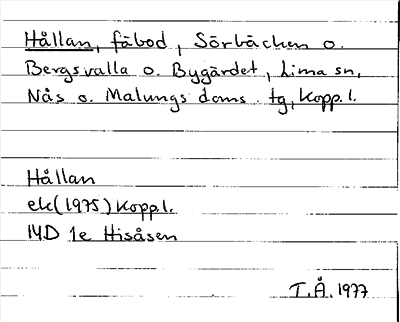 Hållan, fäbod, Sörbäcken o.
Bergsvalla o. Bygärdet, Lima sn,
Nås o. Malungs doms. tg, Kopp.l.
Hållan
ek (1975) Kopp.l.
14D 1e Hisåsen
T.Å. 1977